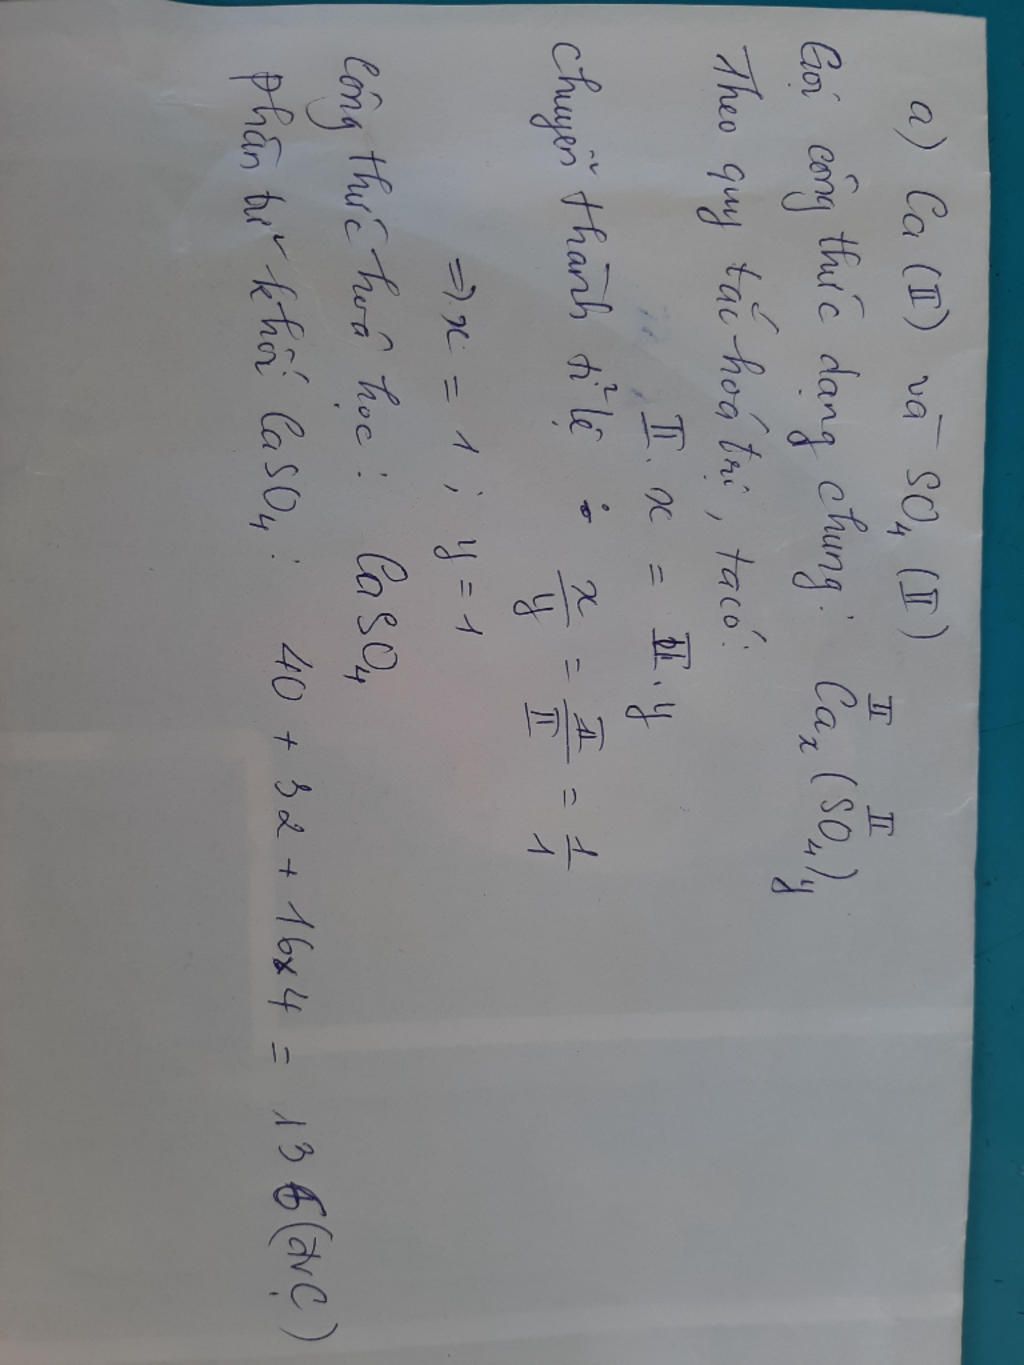 a) Ca (II) và SO4 (II)
Gọi công thức dạng chung: Cax (SO4)y
II II
Theo quy tắc hoá trị, ta có:
II. x = II. y
chuyển thành tỉ lệ : x/y = II/II = 1/1
=> x = 1 ; y = 1
Công thức hoá học: CaSO4
phân tử khối CaSO4: 40 + 32 + 16x4 = 136 (đvC)